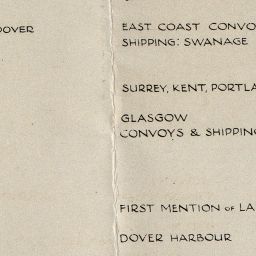 DOVER
EAST COAST CONVO
SHIPPING: SWANAGE
SURREY, KENT, PORTLA
GLASGOW
CONVOYS & SHIPPING
FIRST MENTION OF LA
DOVER HARBOUR